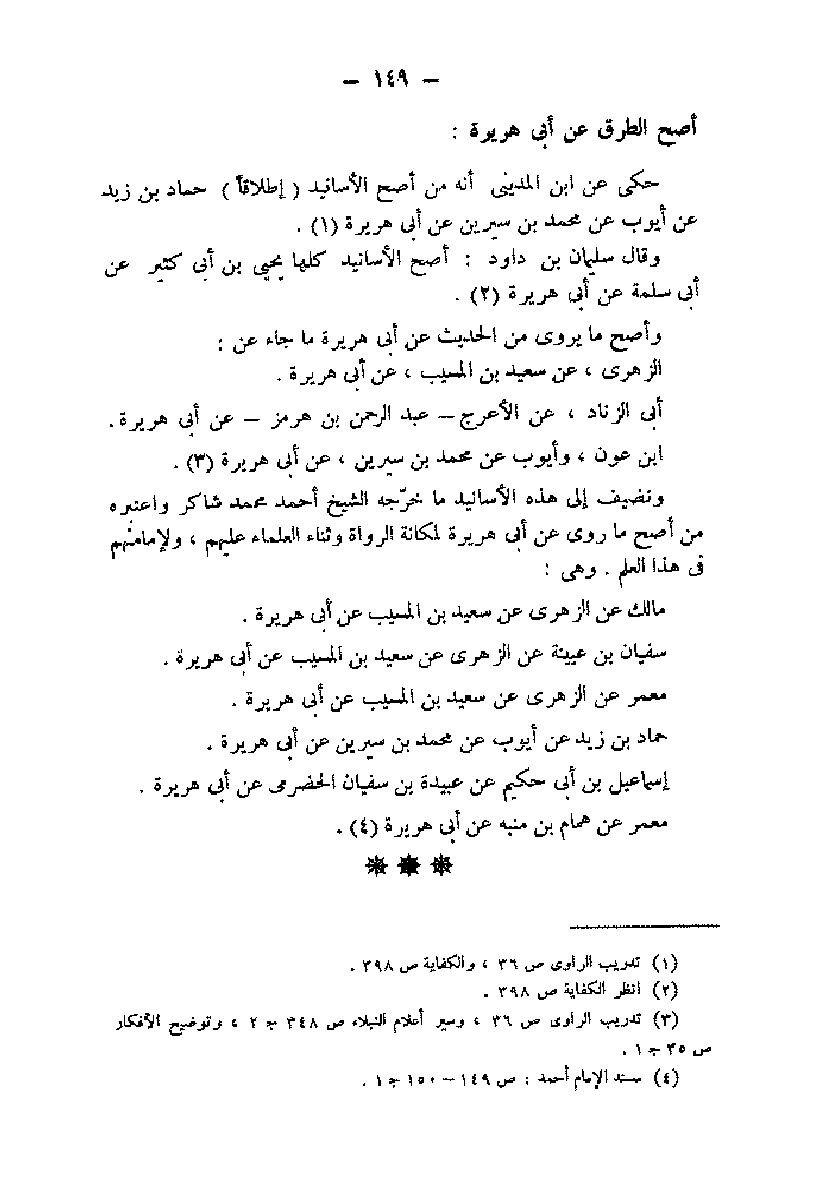 — ١٤٩ —
أصح الطرق عن أبى هريرة :
حكى عن ابن المدينى أنه من أصح الأسانيد ( إطلاقاً ) حماد بن زيد
عن أيوب عن محمد بن سيرين عن أبى هريرة (١) .
وقال سليمان بن داود : أصح الأسانيد كلها يحيى بن أبى كثير عن
أبى سلمة عن أبى هريرة (٢) .
وأصح ما يروى من الحديث عن أبى هريرة ما جاء عن :
الزهرى ، عن سعيد بن المسيب ، عن أبى هريرة .
أبى الزناد ، عن الأعرج – عبد الرحمن بن هرمز – عن أبى هريرة .
ابن عون ، وأيوب عن محمد بن سيرين ، عن أبى هريرة (٣) .
ونضيف إلى هذه الأسانيد ما خرّجه الشيخ أحمد محمد شاكر واعتبره
من أصح ما روى عن أبى هريرة لمكانة الرواة وثناء العلماء عليهم ، ولإمامتهم
فى هذا العلم . وهى :
مالك عن الزهرى عن سعيد بن المسيب عن أبى هريرة .
سفيان بن عيينة عن الزهرى عن سعيد بن المسيب عن أبى هريرة .
معمر عن الزهرى عن سعيد بن المسيب عن أبى هريرة .
حماد بن زيد عن أيوب عن محمد بن سيرين عن أبى هريرة .
إسماعيل بن أبى حكيم عن عبيدة بن سفيان الحضرمى عن أبى هريرة .
معمر عن همام بن منبه عن أبى هريرة (٤) .
(١) تدريب الراوى ص ٣٦ ، والكفاية ص ٣٩٨ .
(٢) انظر الكفاية ص ٣٩٨ .
(٣) تدريب الراوى ص ٣٦ ، وسير أعلام النبلاء ص ٣٤٨ جـ ٢ ، وتوضيح الأفكار
ص ٣٥ جـ ١ .
(٤) مسند الإمام أحمد : ص ١٤٩ – ١٥٠ جـ ١ .